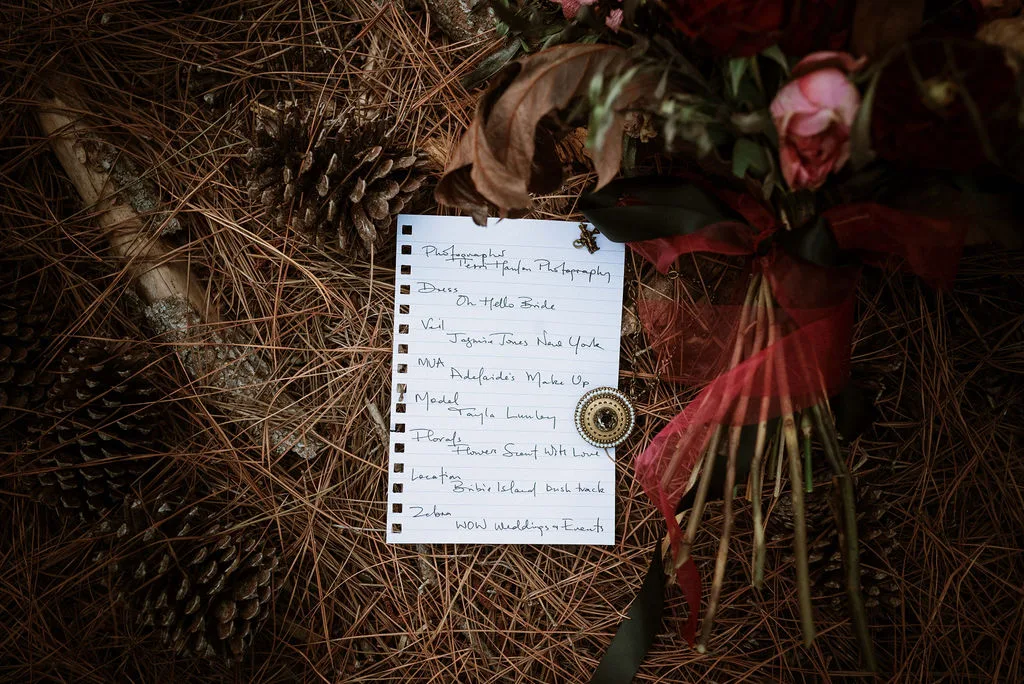 Photographer
Terri Hanlon Photography
Dress
Oh Hello Bride
Veil
Jasmine Jones New York
MUA
Adelaide's Make Up
Model
Tayla Lumley
Florals
Flowers Scent With Love
Location
Bribie Island bush track
Zebra
WOW Weddings & Events